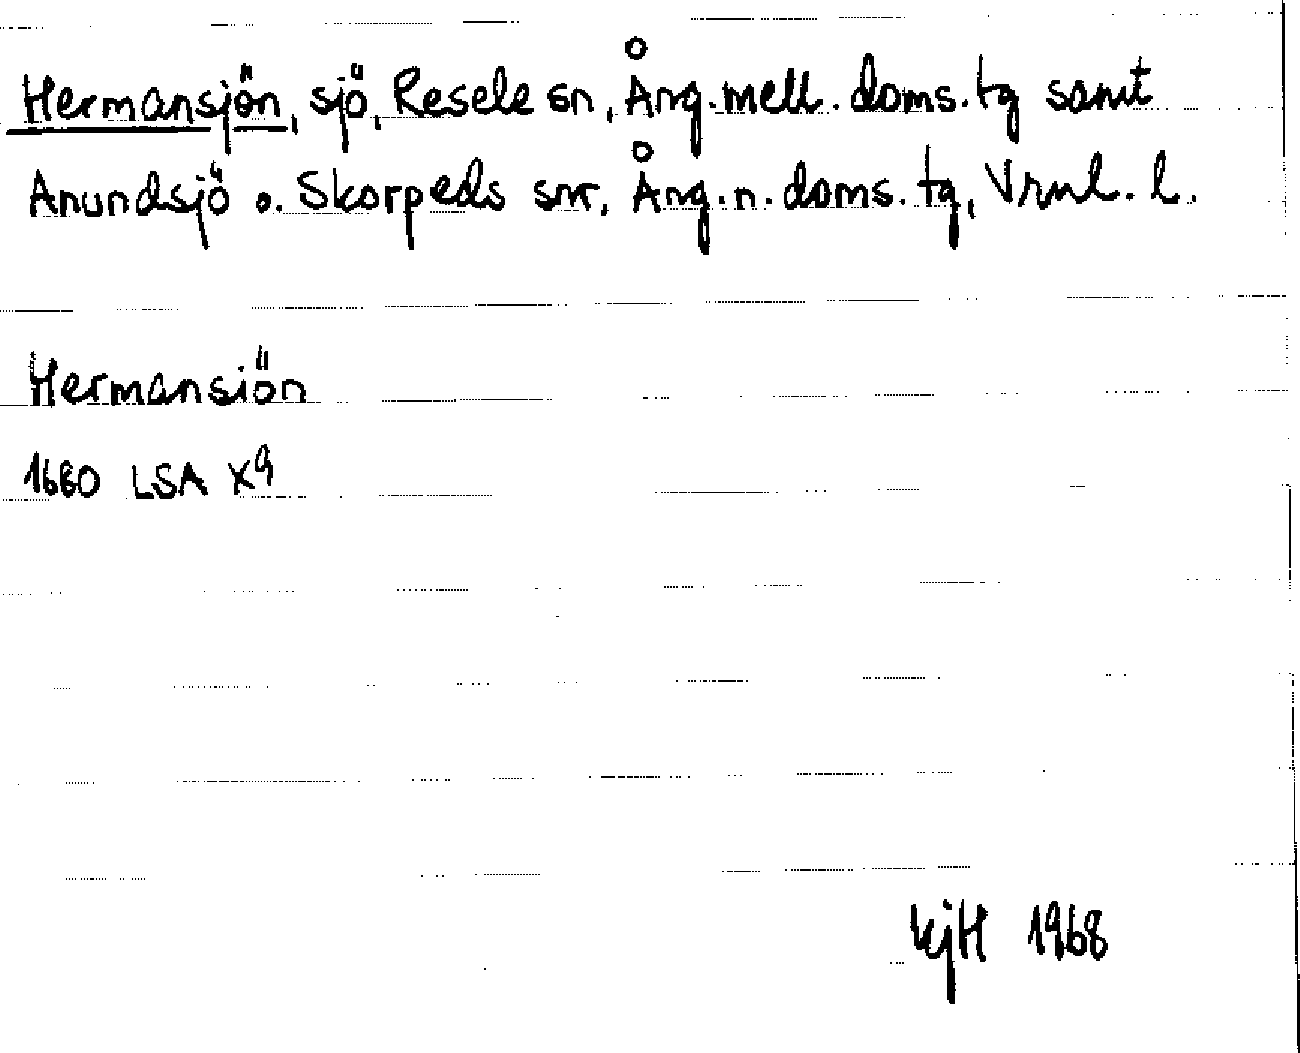 Hermansjön, sjö, Resele sn, Ång. mell. doms. tg samt
Anundsjö o. Skorpeds snr, Ång. n. doms. tg, Vrnl. l.
Hermansiön
1680 LSA X9
KjH 1968